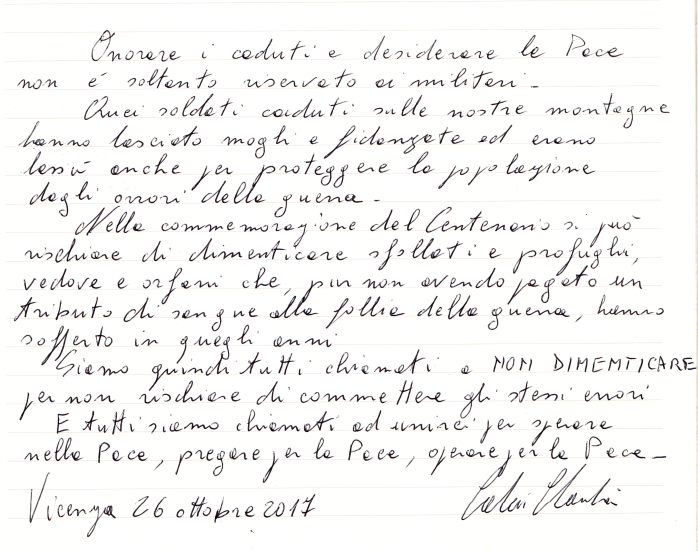 Onorare i caduti e desiderare la Pace
non é soltanto riservato ai militari.
Quei soldati caduti sulle nostre montagne
hanno lasciato mogli e fidanzate ed erano
lassù anche per proteggere la popolazione
dagli orrori della guerra.
Nella commemorazione del Centenario si può
rischiare di dimenticare sfollati e profughi,
vedove e orfani che, pur non avendo pagato un
tributo di sangue alla follia della guerra, hanno
sofferto in quegli anni
Siamo quindi tutti chiamati a NON DIMENTICARE
per non rischiare di commettere gli stessi errori
E tutti siamo chiamati ad unirci per sperare
nella Pace, pregare per la Pace, operare per la Pace_
Vicenza 26 ottobre 2017